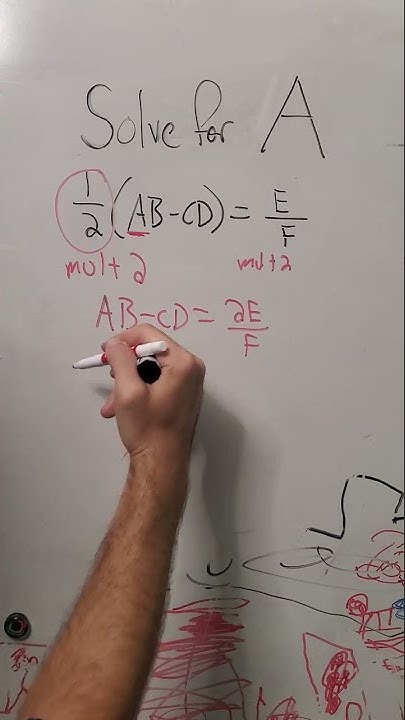 Solve for A
1/2 (AB-CD) = E/F
mult 2 mult 2
AB-CD = 2E/F